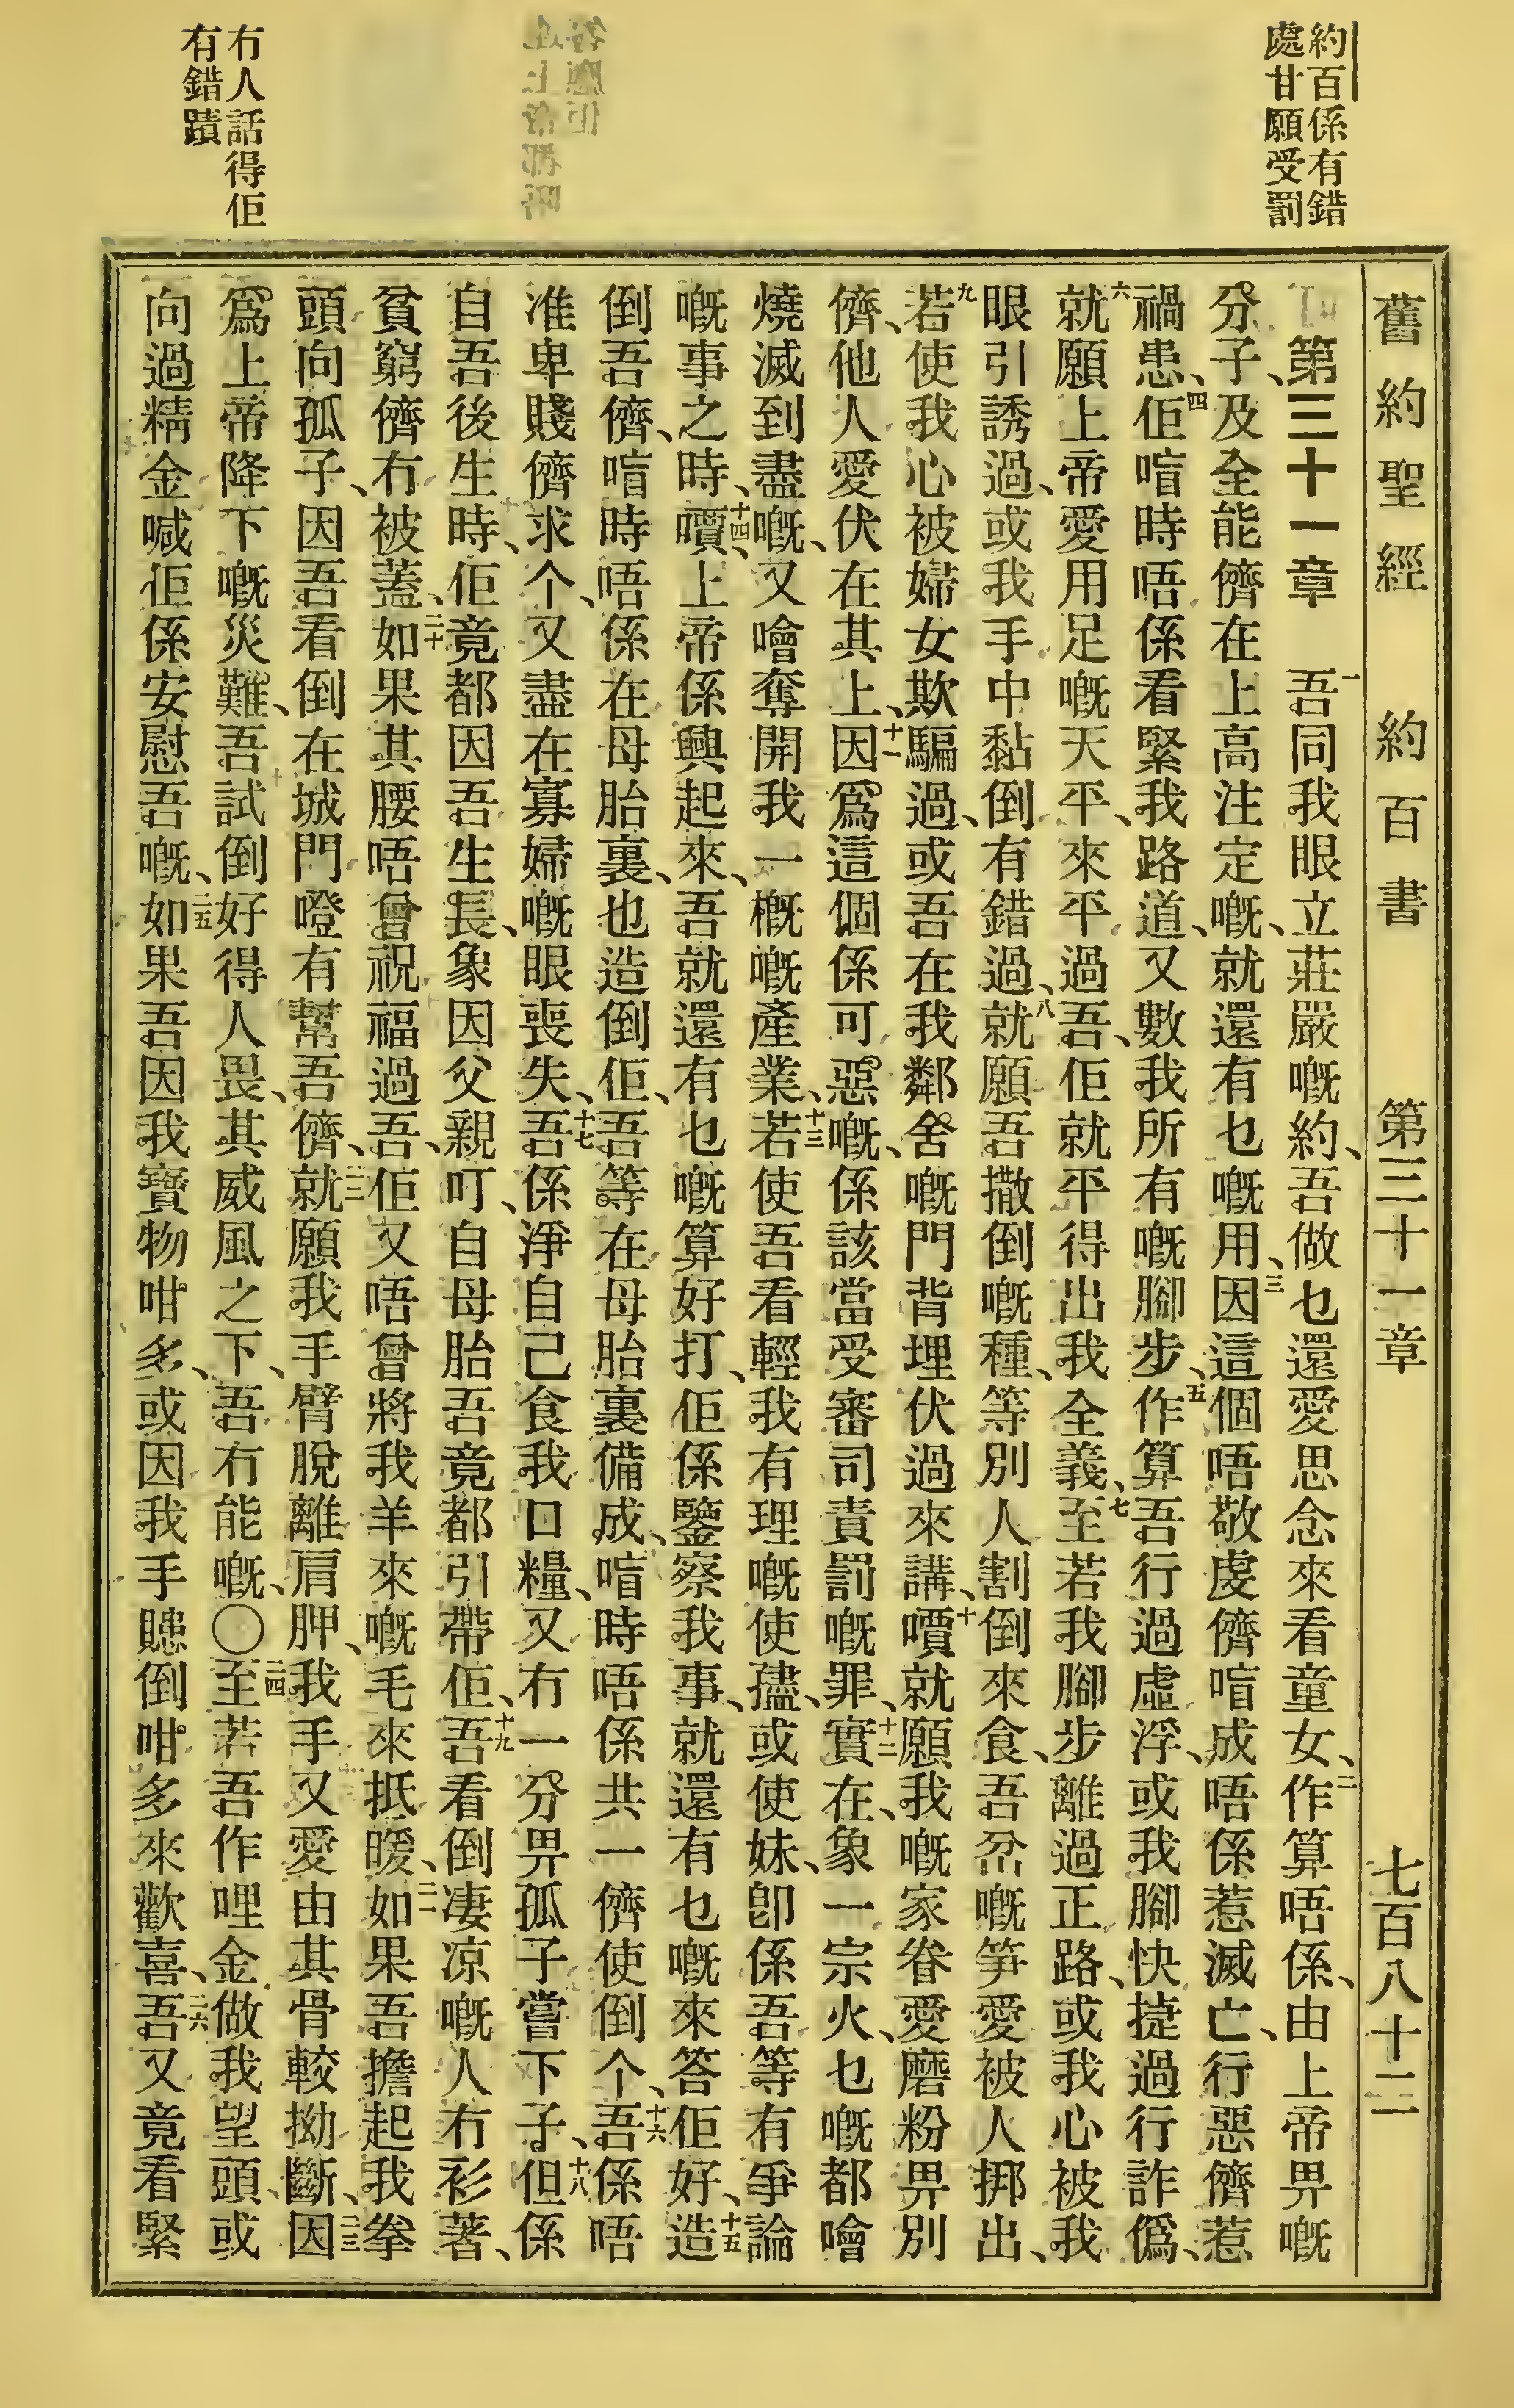 約百係有錯
處甘願受罰
冇人話得佢
有錯蹟
舊約聖經　約百書　第三十一章　七百八十二
第三十一章　一吾同我眼立莊嚴嘅約、吾做乜還愛思念來看童女、二作算唔係、由上帝畀嘅
分子、及全能儕在上高注定嘅、就還有乜嘅用、三因這個唔敬虔儕喧成唔係惹滅亡、行惡儕惹
禍患、四佢喧時唔係看緊我路道、又數我所有嘅腳步、五作算吾行過虛浮、或我腳快捷過行詐僞、
六就願上帝愛用足嘅天平、來平過吾、佢就平得出我全義、七至若我腳步離過正路、或我心被我
眼引誘過、或我手中黏倒有錯過、八就願吾撒倒嘅種、等別人割倒來食、吾岔嘅笋愛被人挷出、
九若使我心被婦女欺騙過、或吾在我鄰舍嘅門背埋伏過來講、十嘪就願我嘅家眷愛磨粉畀別
儕、他人愛伏在其上、十一因爲這個係可惡嘅、係該當受審司責罰嘅罪、十二實在、象一宗火、乜嘅都噲
燒滅到盡嘅、又噲奪開我一概嘅產業、十三若使吾看輕我有理嘅使孻、或使妹、卽係吾等有爭論
嘅事之時、十四嘪、上帝係興起來、吾就還有乜嘅算好打、佢係鑒察我事、就還有乜嘅來答佢好、十五造
倒吾儕、喧時唔係在母胎裏、也造倒佢、吾等在母胎裏備成、喧時唔係共一儕使倒个、十六吾係唔
准卑賤儕求个、又盡在寡婦嘅眼喪失、十七吾係淨自己食我口糧、又冇一分畀孤子嘗下子、十八但係
自吾後生時、佢竟都因吾生長、象因父親叮、自母胎吾竟都引帶佢、十九吾看倒凄凉嘅人冇衫著、
貧窮儕冇被蓋、二十如果其腰唔曾祝福過吾、佢又唔曾將我羊來嘅毛來抵暖、二一如果吾擔起我拳
頭向孤子、因吾看倒在城門嶝有幫吾儕、二二就願我手臂脫離肩胛、我手又愛由其骨較拗斷、二三因
爲上帝降下嘅災難、吾試倒好得人畏、其威風之下、吾冇能嘅、〇二四至若吾作哩金做我望頭、或
向過精金喊佢係安慰吾嘅、二五如果吾因我寶物咁多、或因我手賺倒咁多來歡喜、二六吾又竟看緊